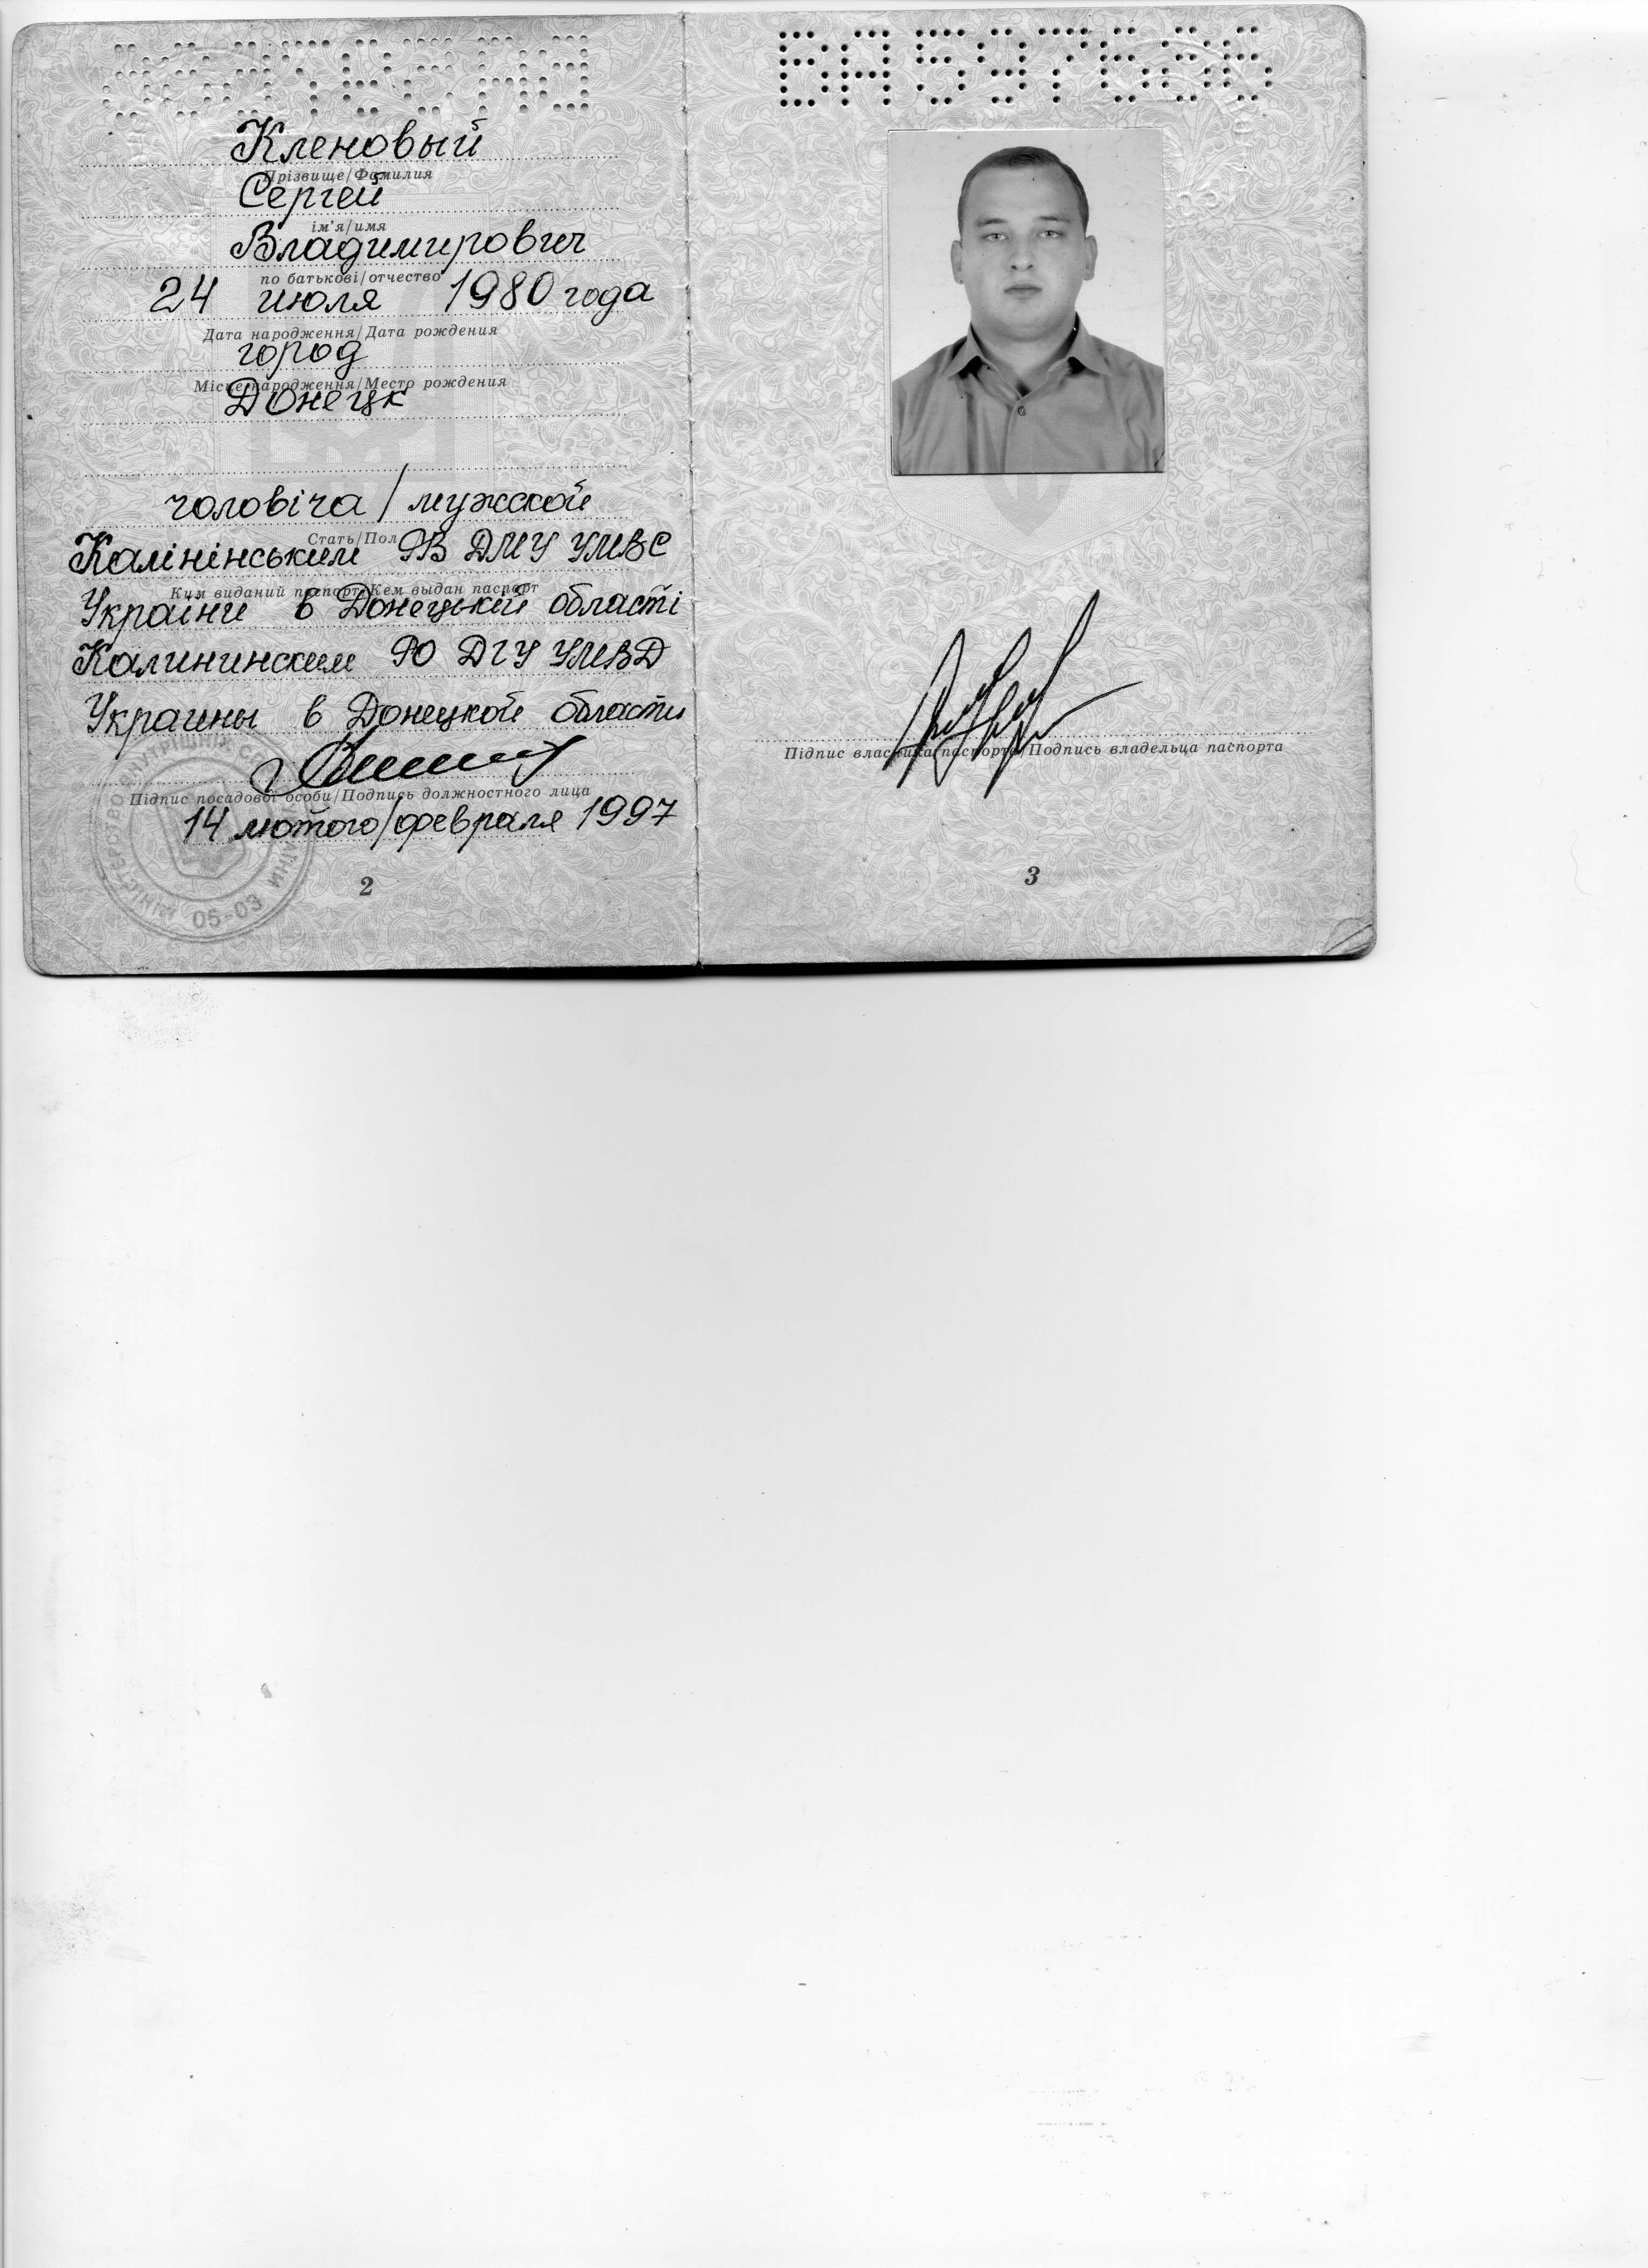 Кленовый
Прізвище/Фамилия
Сергей
ім'я/имя
Владимирович
по батькові/отчество
24 июля 1980 года
Дата народження/Дата рождения
город
Місце народження/Место рождения
Донецк
чоловіча / мужской
Стать/Пол
Калінінським РВ ДМУ УМВС
Ким виданий паспорт/Кем выдан паспорт
України в Донецькій області
Калининским РО ДГУ УМВД
Украины в Донецкой области
Підпис посадової особи/Подпись должностного лица
14 лютого/февраля 1997
МІНІСТЕРСТВО ВНУТРІШНІХ
05-03
2
Підпис власника паспорта/Подпись владельца паспорта
3